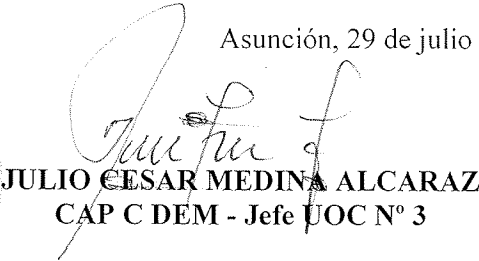 Asunción, 29 de julio
JULIO CESAR MEDINA ALCARAZ
CAP C DEM - Jefe UOC Nº 3